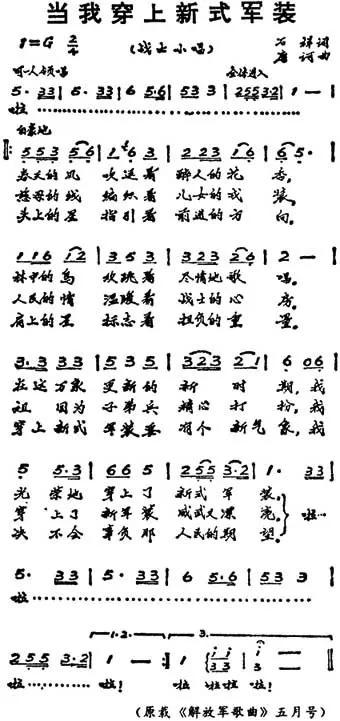 当我穿上新式军装
1=G 2/4
(战士小唱)
石 祥词
唐 诃曲
几人领唱
全体进入
5· 33 | 5· 33 | 6 5·6 | 53 3 | 2553·2 | 1 — |
啦
自豪地
‖: 553 56 | 1 6 3 | 223 16 | 65· |
春天的风 吹送着 醉人的花 香,
慈母的线 编织着 儿女的戎 装。
头上的星 指引着 前进的方 向。
116 12 | 353 | 323 26 | 2 — |
林中的鸟 欢跳着 尽情地歌 唱。
人民的情 温暖着 战士的心 房。
肩上的星 标志着 担负的重 量。
3·3 33 | 535 | 323 21 | 6 06 |
在这万象 更新的 新 时 期,我
祖 国为 子弟兵 精心 打 扮,我
穿上新式 军装要 有个 新气 象,我
5 5·3 | 66 5 | 255 3·2 | 1· 33 |
光 荣地 穿上了 新式 军 装。
穿 上了 新军装 威武又漂 亮。 啦…
决 不会 辜负那 人民的期 望。
5· 33 | 5· 33 | 6 5·6 | 53 3 |
啦
1.2. 3.
255 3·2 | 1 — :‖ 1 33 | 3 — ‖
啦 啦! 啦 啦啦 啦!
(原载《解放军歌曲》五月号)